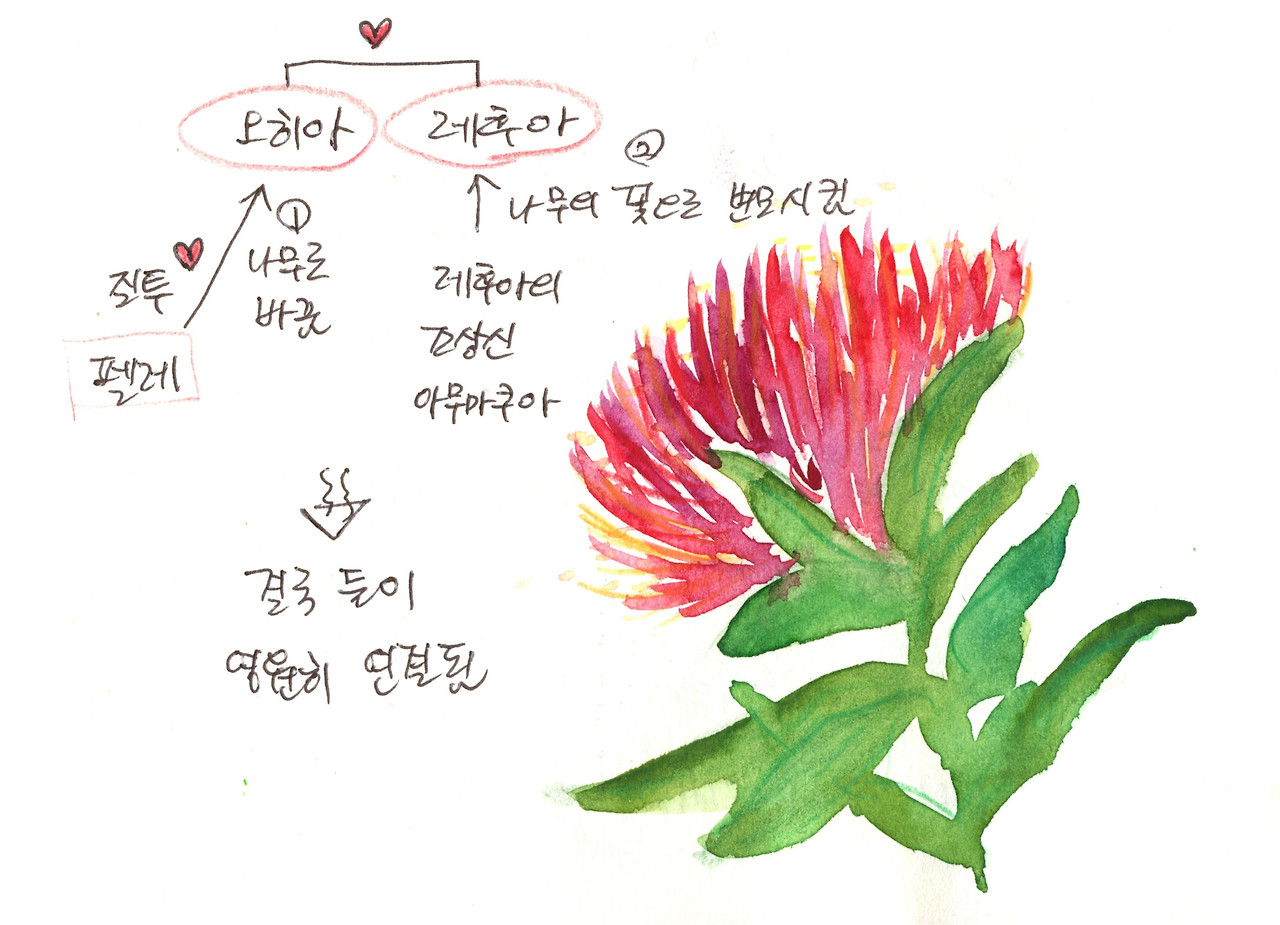 오히아 레후아
②
나무의 꽃으로 변모시킴
①
나무로
바꿈
질투
펠레
레후아의
조상신
아무마쿠아
결국 둘이
영원히 연결됨